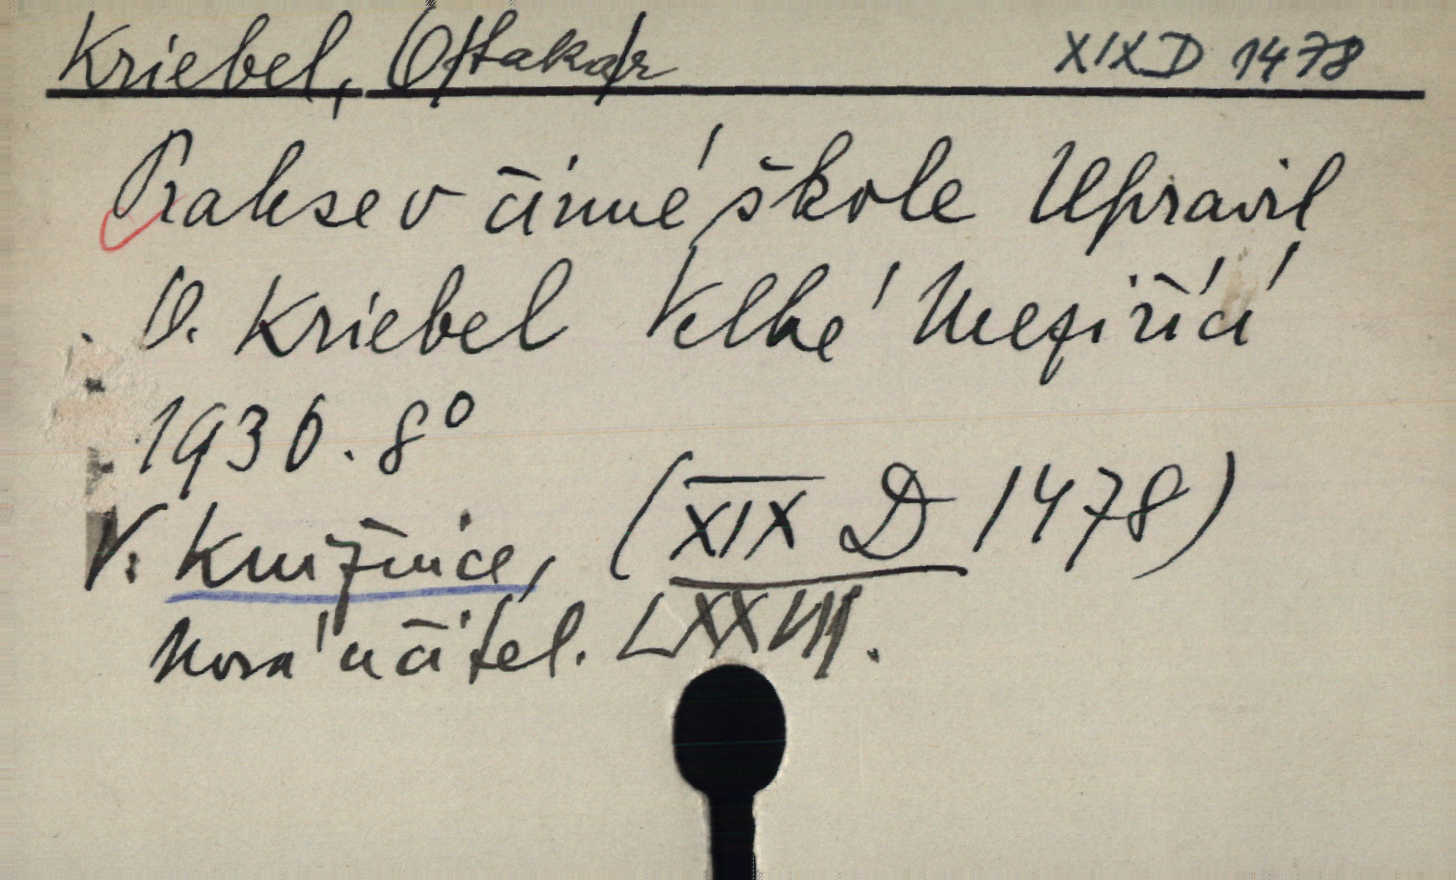 Kriebel, (Ottaka)r XIX D 1478
Prakse v činné škole Upravil
O. Kriebel Velké Meziříčí
1930. 8°
V. Knižnice, (XIX D 1478)
Nová učitel. LXXVIII.